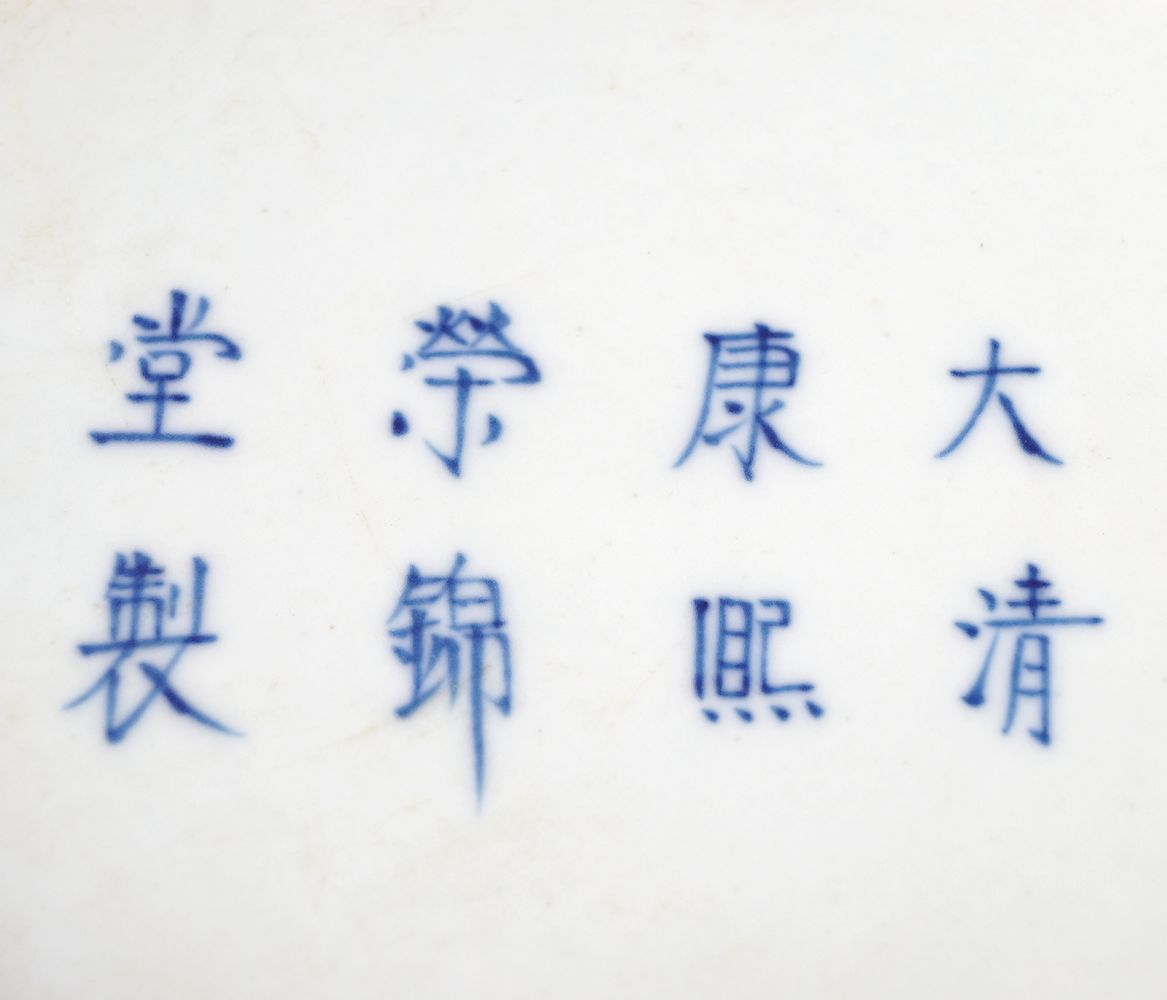 大清
康熙
榮錦
堂製